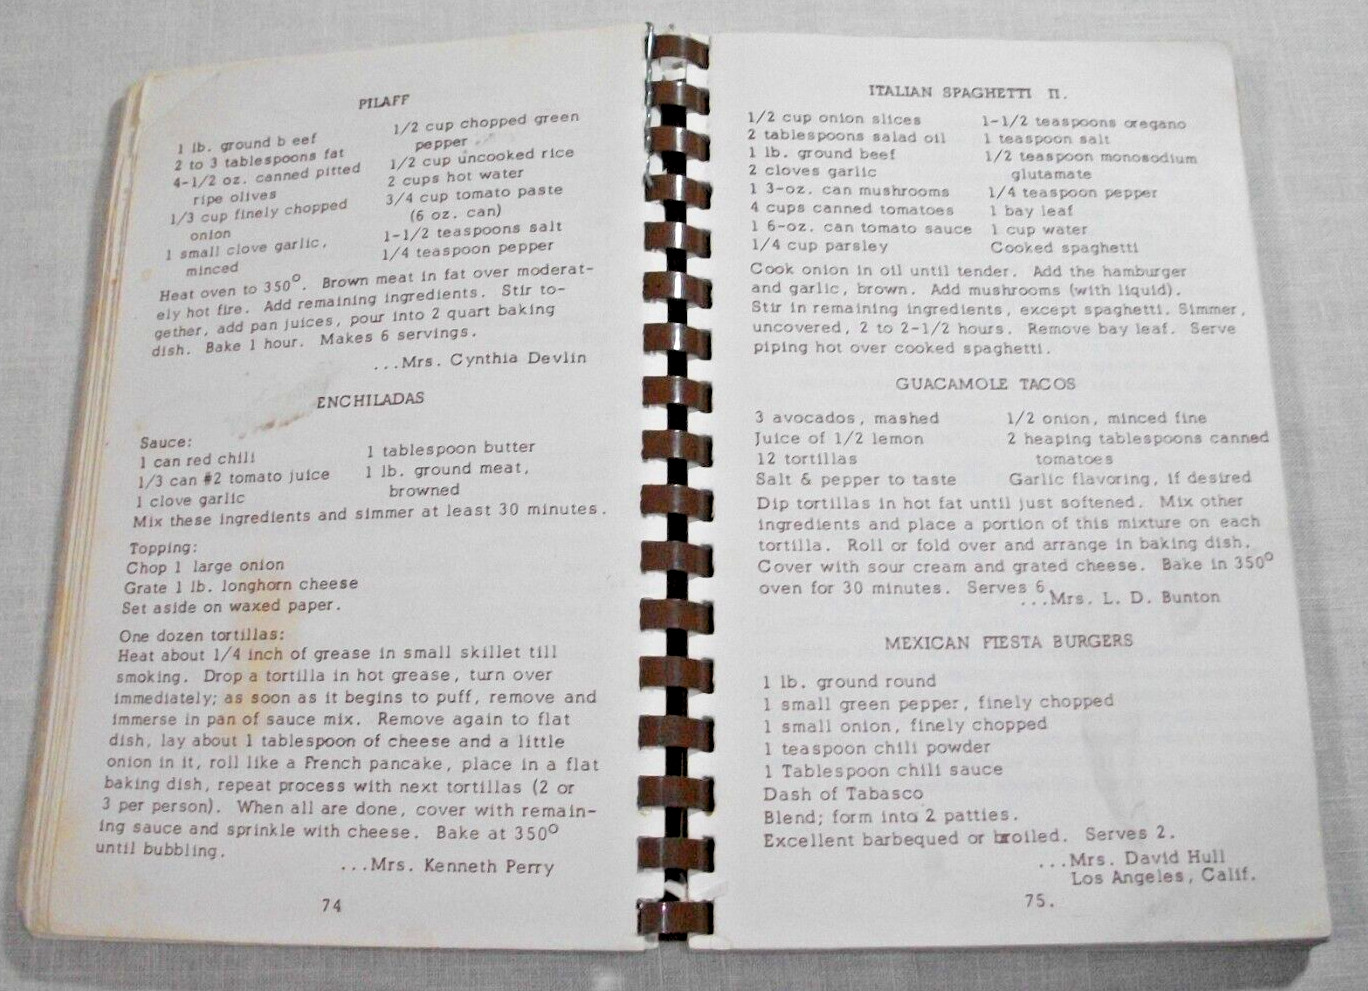 PILAFF
1 lb. ground b eef
2 to 3 tablespoons fat
4-1/2 oz. canned pitted
ripe olives
1/3 cup finely chopped
onion
1 small clove garlic,
minced
1/2 cup chopped green
pepper
1/2 cup uncooked rice
2 cups hot water
3/4 cup tomato paste
(6 oz. can)
1-1/2 teaspoons salt
1/4 teaspoon pepper
Heat oven to 350°. Brown meat in fat over moderat-
ely hot fire. Add remaining ingredients. Stir to-
gether, add pan juices, pour into 2 quart baking
dish. Bake 1 hour. Makes 6 servings.
...Mrs. Cynthia Devlin
ENCHILADAS
Sauce:
1 can red chili
1/3 can #2 tomato juice
1 clove garlic
1 tablespoon butter
1 lb. ground meat,
browned
Mix these ingredients and simmer at least 30 minutes.
Topping:
Chop 1 large onion
Grate 1 lb. longhorn cheese
Set aside on waxed paper.
One dozen tortillas:
Heat about 1/4 inch of grease in small skillet till
smoking. Drop a tortilla in hot grease, turn over
immediately; as soon as it begins to puff, remove and
immerse in pan of sauce mix. Remove again to flat
dish, lay about 1 tablespoon of cheese and a little
onion in it, roll like a French pancake, place in a flat
baking dish, repeat process with next tortillas (2 or
3 per person). When all are done, cover with remain-
ing sauce and sprinkle with cheese. Bake at 350°
until bubbling.
...Mrs. Kenneth Perry
74
ITALIAN SPAGHETTI II.
1/2 cup onion slices
2 tablespoons salad oil
1 lb. ground beef
2 cloves garlic
1 3-oz. can mushrooms
4 cups canned tomatoes
1 6-oz. can tomato sauce
1/4 cup parsley
1-1/2 teaspoons oregano
1 teaspoon salt
1/2 teaspoon monosodium
glutamate
1/4 teaspoon pepper
1 bay leaf
1 cup water
Cooked spaghetti
Cook onion in oil until tender. Add the hamburger
and garlic, brown. Add mushrooms (with liquid).
Stir in remaining ingredients, except spaghetti. Simmer,
uncovered, 2 to 2-1/2 hours. Remove bay leaf. Serve
piping hot over cooked spaghetti.
GUACAMOLE TACOS
3 avocados, mashed
Juice of 1/2 lemon
12 tortillas
Salt & pepper to taste
1/2 onion, minced fine
2 heaping tablespoons canned
tomatoes
Garlic flavoring, if desired
Dip tortillas in hot fat until just softened. Mix other
ingredients and place a portion of this mixture on each
tortilla. Roll or fold over and arrange in baking dish.
Cover with sour cream and grated cheese. Bake in 350°
oven for 30 minutes. Serves 6.
...Mrs. L. D. Bunton
MEXICAN FIESTA BURGERS
1 lb. ground round
1 small green pepper, finely chopped
1 small onion, finely chopped
1 teaspoon chili powder
1 Tablespoon chili sauce
Dash of Tabasco
Blend; form into 2 patties.
Excellent barbequed or broiled. Serves 2.
...Mrs. David Hull
Los Angeles, Calif.
75.